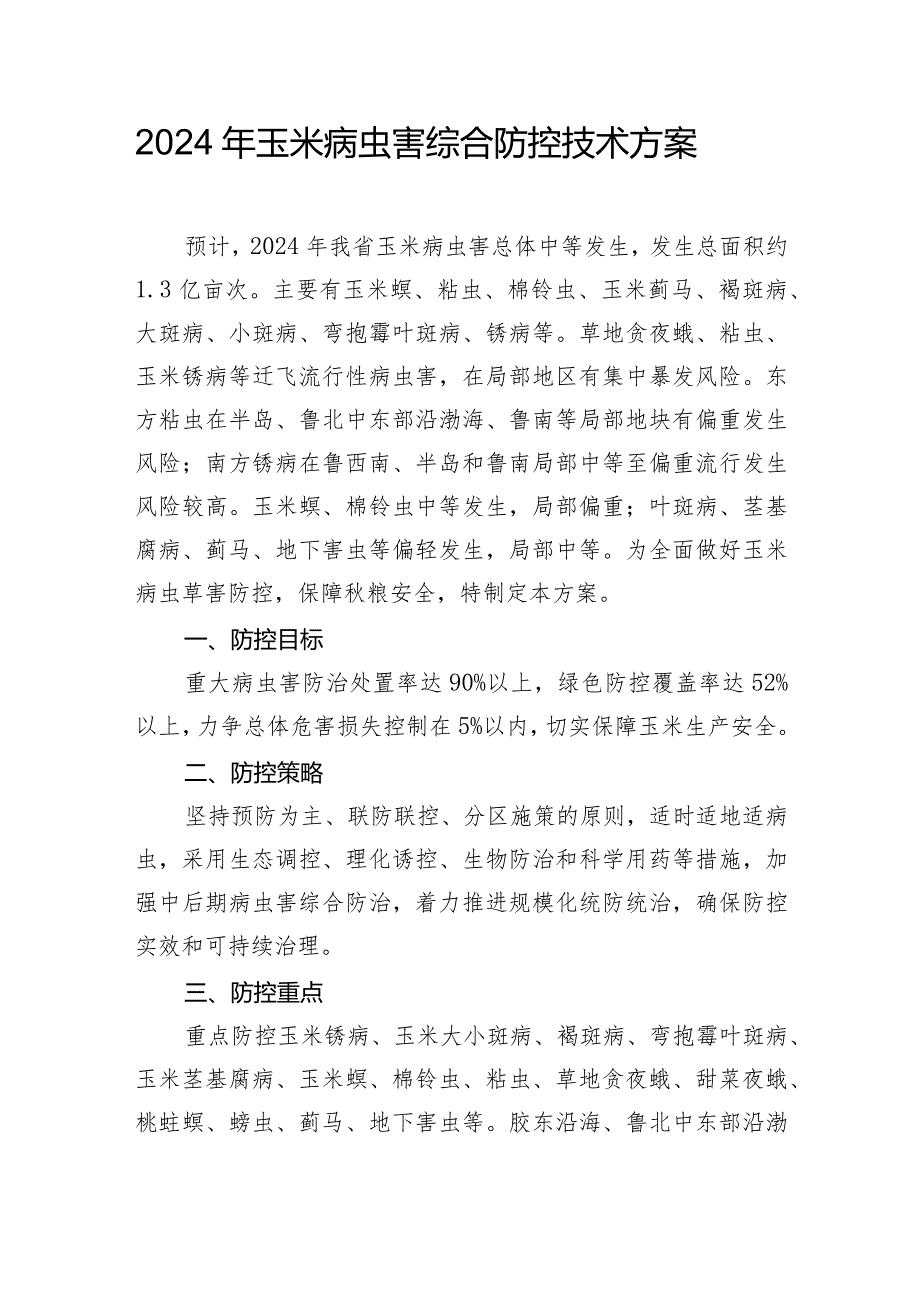 2024 年玉米病虫害综合防控技术方案
预计，2024 年我省玉米病虫害总体中等发生，发生总面积约
1.3 亿亩次。主要有玉米螟、粘虫、棉铃虫、玉米蓟马、褐斑病、
大斑病、小斑病、弯抱霉叶斑病、锈病等。草地贪夜蛾、粘虫、
玉米锈病等迁飞流行性病虫害，在局部地区有集中暴发风险。东
方粘虫在半岛、鲁北中东部沿渤海、鲁南等局部地块有偏重发生
风险；南方锈病在鲁西南、半岛和鲁南局部中等至偏重流行发生
风险较高。玉米螟、棉铃虫中等发生，局部偏重；叶斑病、茎基
腐病、蓟马、地下害虫等偏轻发生，局部中等。为全面做好玉米
病虫草害防控，保障秋粮安全，特制定本方案。
一、防控目标
重大病虫害防治处置率达 90%以上，绿色防控覆盖率达 52%
以上，力争总体危害损失控制在 5%以内，切实保障玉米生产安全。
二、防控策略
坚持预防为主、联防联控、分区施策的原则，适时适地适病
虫，采用生态调控、理化诱控、生物防治和科学用药等措施，加
强中后期病虫害综合防治，着力推进规模化统防统治，确保防控
实效和可持续治理。
三、防控重点
重点防控玉米锈病、玉米大小斑病、褐斑病、弯抱霉叶斑病、
玉米茎基腐病、玉米螟、棉铃虫、粘虫、草地贪夜蛾、甜菜夜蛾、
桃蛀螟、螃虫、蓟马、地下害虫等。胶东沿海、鲁北中东部沿渤